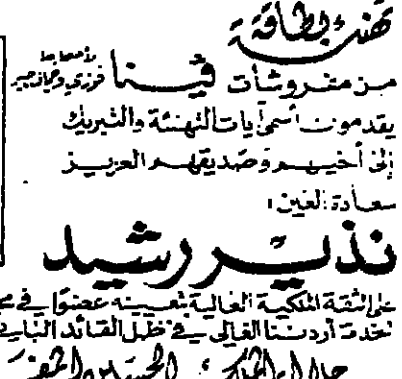 تهنئة بطاقة
من مفروشات فينا لأصحابها فوزي وحيا
يقدمون أسمى آيات التهنئة والتبريك
إلى أخيهم وصديقهم العزيز
سعادة العين:
نذير رشيد
على الثقة الملكية الغالية بتعيينه عضوا في
لخدمة أردننا الغالي في ظل القائد
جلالة الملك الحسين المعظم